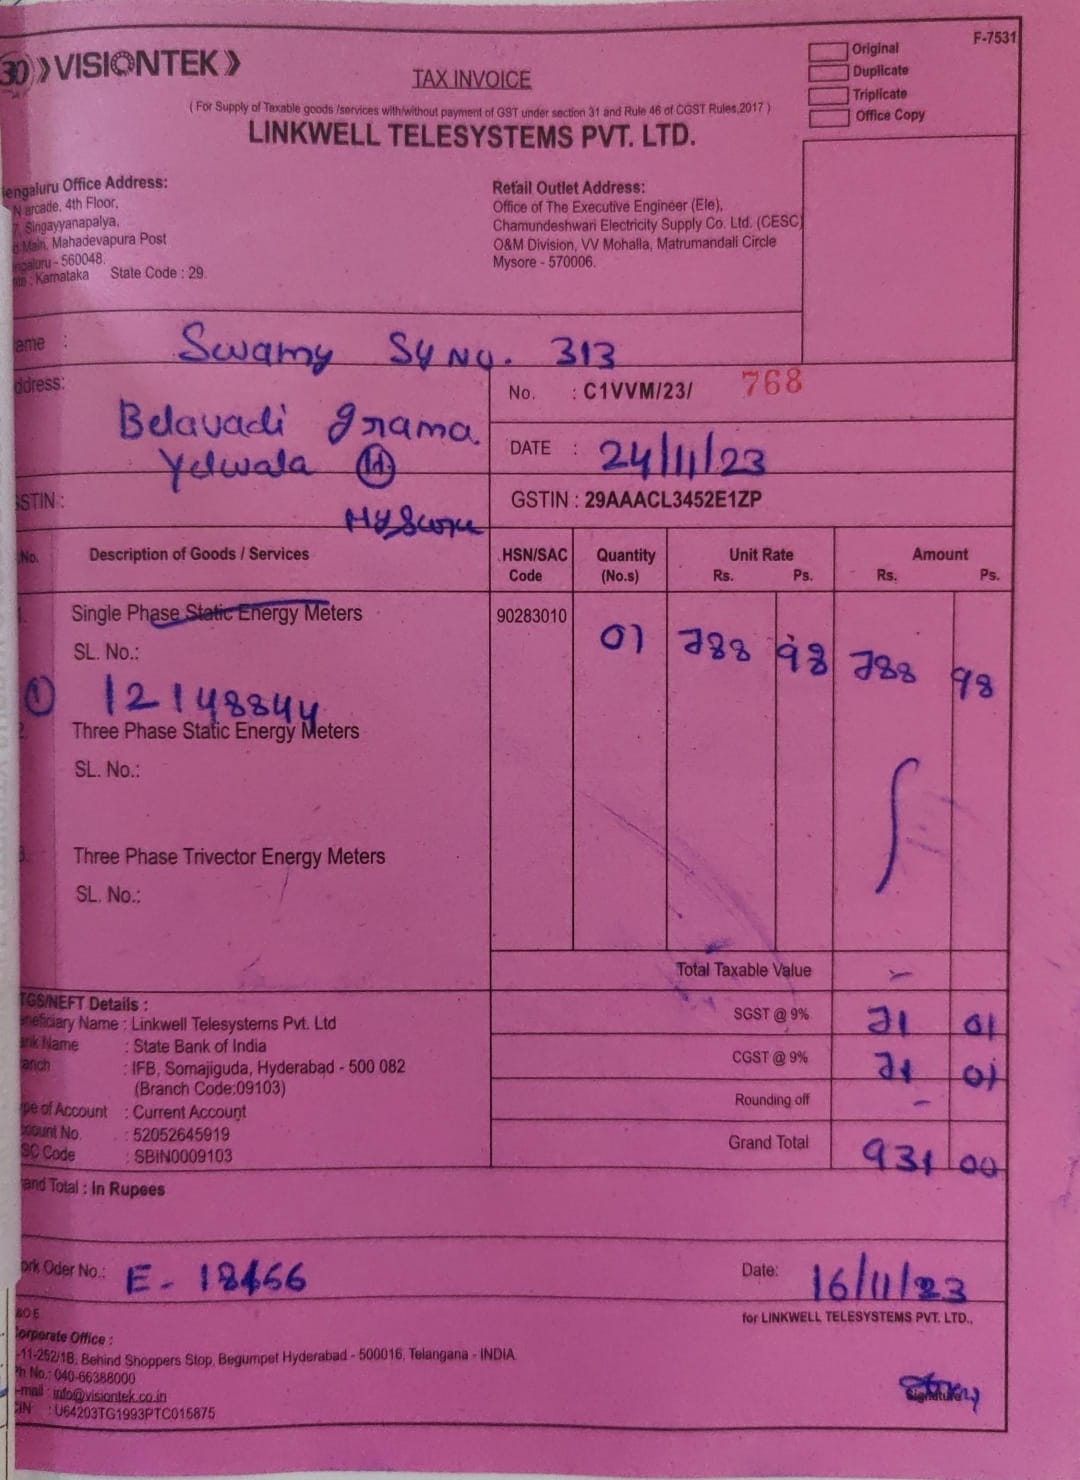 30 VISIONTEK
F-7531
Original
Duplicate
Triplicate
Office Copy
TAX INVOICE
( For Supply of Taxable goods /services with/without payment of GST under section 31 and Rule 46 of CGST Rules,2017 )
LINKWELL TELESYSTEMS PVT. LTD.
engaluru Office Address:
N arcade, 4th Floor,
7, Singayyanapalya,
d Main, Mahadevapura Post
ngaluru - 560048.
: Karnataka State Code : 29.
Retail Outlet Address:
Office of The Executive Engineer (Ele),
Chamundeshwari Electricity Supply Co. Ltd. (CESC)
O&M Division, VV Mohalla, Matrumandali Circle
Mysore - 570006.
ame : Swamy Sy No. 313
ddress: Belavadi grama
Yelwala (H)
Myscore
No. : C1VVM/23/ 768
DATE : 24/11/23
STIN :
GSTIN : 29AAACL3452E1ZP
No. Description of Goods / Services HSN/SAC Code Quantity (No.s) Unit Rate Rs. Ps. Amount Rs. Ps.
1. Single Phase Static Energy Meters 90283010 01 788 98 788 98
SL. No.:
① 12148844
2. Three Phase Static Energy Meters
SL. No.:
3. Three Phase Trivector Energy Meters
SL. No.:
Total Taxable Value -
SGST @ 9% 71 01
CGST @ 9% 71 01
Rounding off -
Grand Total 931 00
TGS/NEFT Details :
neficiary Name : Linkwell Telesystems Pvt. Ltd
ank Name : State Bank of India
anch : IFB, Somajiguda, Hyderabad - 500 082
(Branch Code:09103)
pe of Account : Current Account
count No. : 52052645919
SC Code : SBIN0009103
and Total : In Rupees
ork Oder No.: E - 18466
Date: 16/11/23
for LINKWELL TELESYSTEMS PVT. LTD.,
&OE
orporate Office :
-11-252/1B, Behind Shoppers Stop, Begumpet Hyderabad - 500016, Telangana - INDIA
h No.: 040-66388000
-mail : info@visiontek.co.in
IN : U64203TG1993PTC015875
Signature